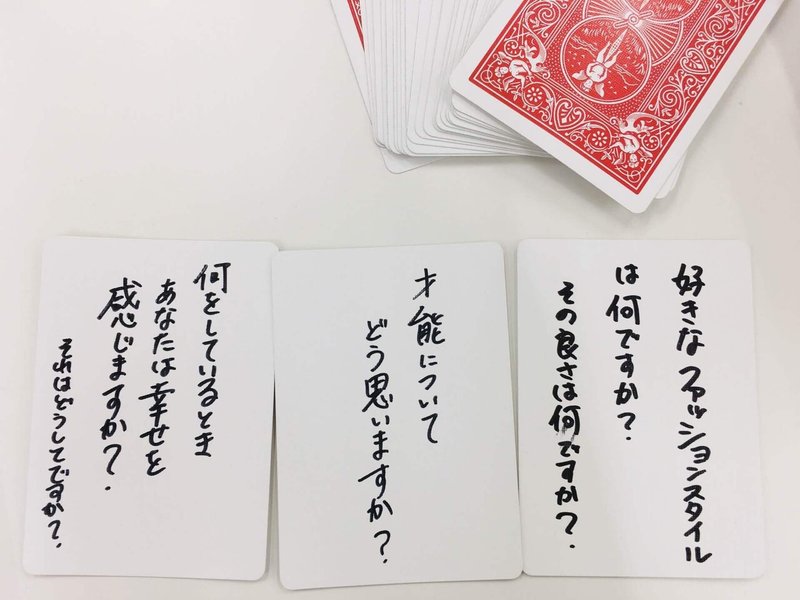 好きなファッションスタイル
は何ですか？
その良さは何ですか？
才能について
どう思いますか？
何をしているとき
あなたは幸せを
感じますか？
それはどうしてですか？